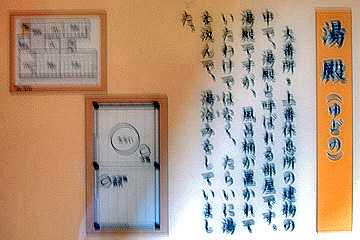 湯殿（ゆどの）
大番所・上番休息所の建物の
中で、湯殿と呼ばれる部屋です。
湯殿ですが、風呂桶が置かれて
いたわけではなく、たらいに湯
を汲んで、湯浴みをしていまし
た。